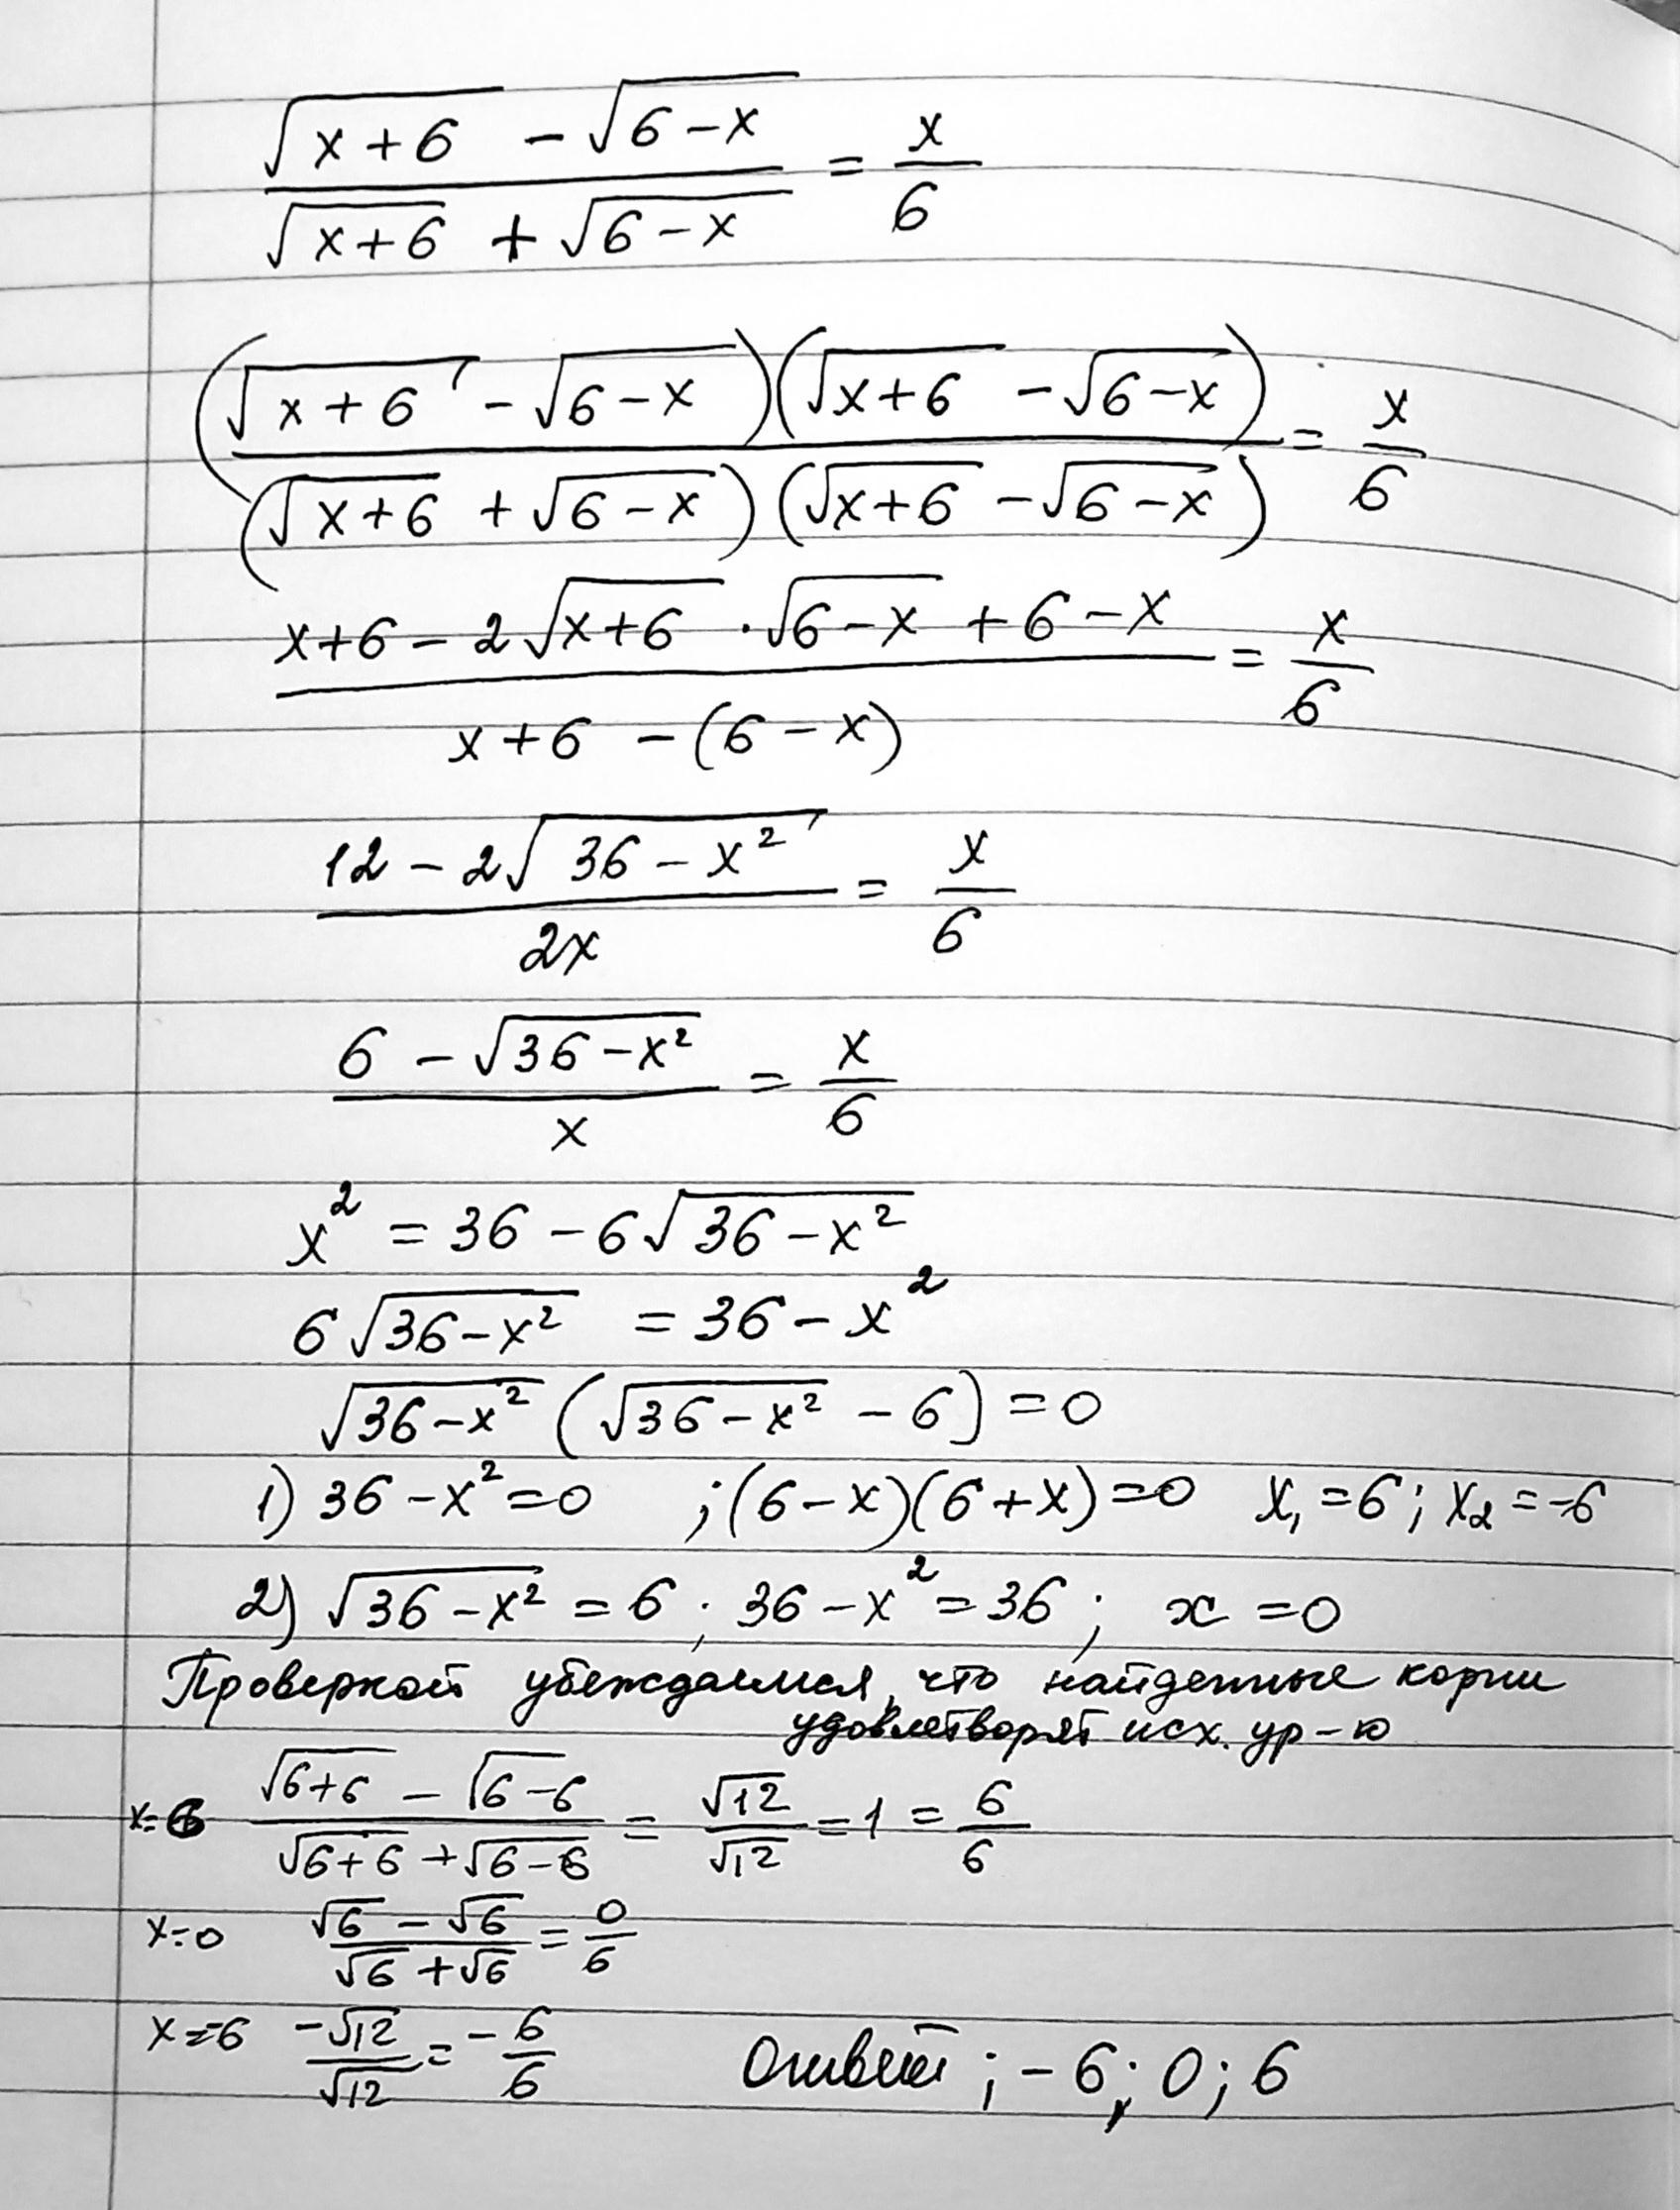 (√(x+6) − √(6−x)) / (√(x+6) + √(6−x)) = x/6
((√(x+6) − √(6−x))(√(x+6) − √(6−x))) / ((√(x+6) + √(6−x))(√(x+6) − √(6−x))) = x/6
(x+6 − 2√(x+6) · √(6−x) + 6−x) / (x+6 − (6−x)) = x/6
(12 − 2√(36−x²)) / 2x = x/6
(6 − √(36−x²)) / x = x/6
x² = 36 − 6√(36−x²)
6√(36−x²) = 36−x²
√(36−x²) (√(36−x²) − 6) = 0
1) 36−x²=0 ; (6−x)(6+x)=0 x₁=6; x₂=−6
2) √(36−x²) = 6; 36−x²=36; x=0
Проверкой убеждаемся, что найденные корни
удовлетворят исх. ур-ю
x=6 (√(6+6) − √(6−6)) / (√(6+6) + √(6−6)) = √12/√12 = 1 = 6/6
x=0 (√6 − √6) / (√6 + √6) = 0/6
x=−6 −√12/√12 = −6/6 Ответ ; −6; 0; 6